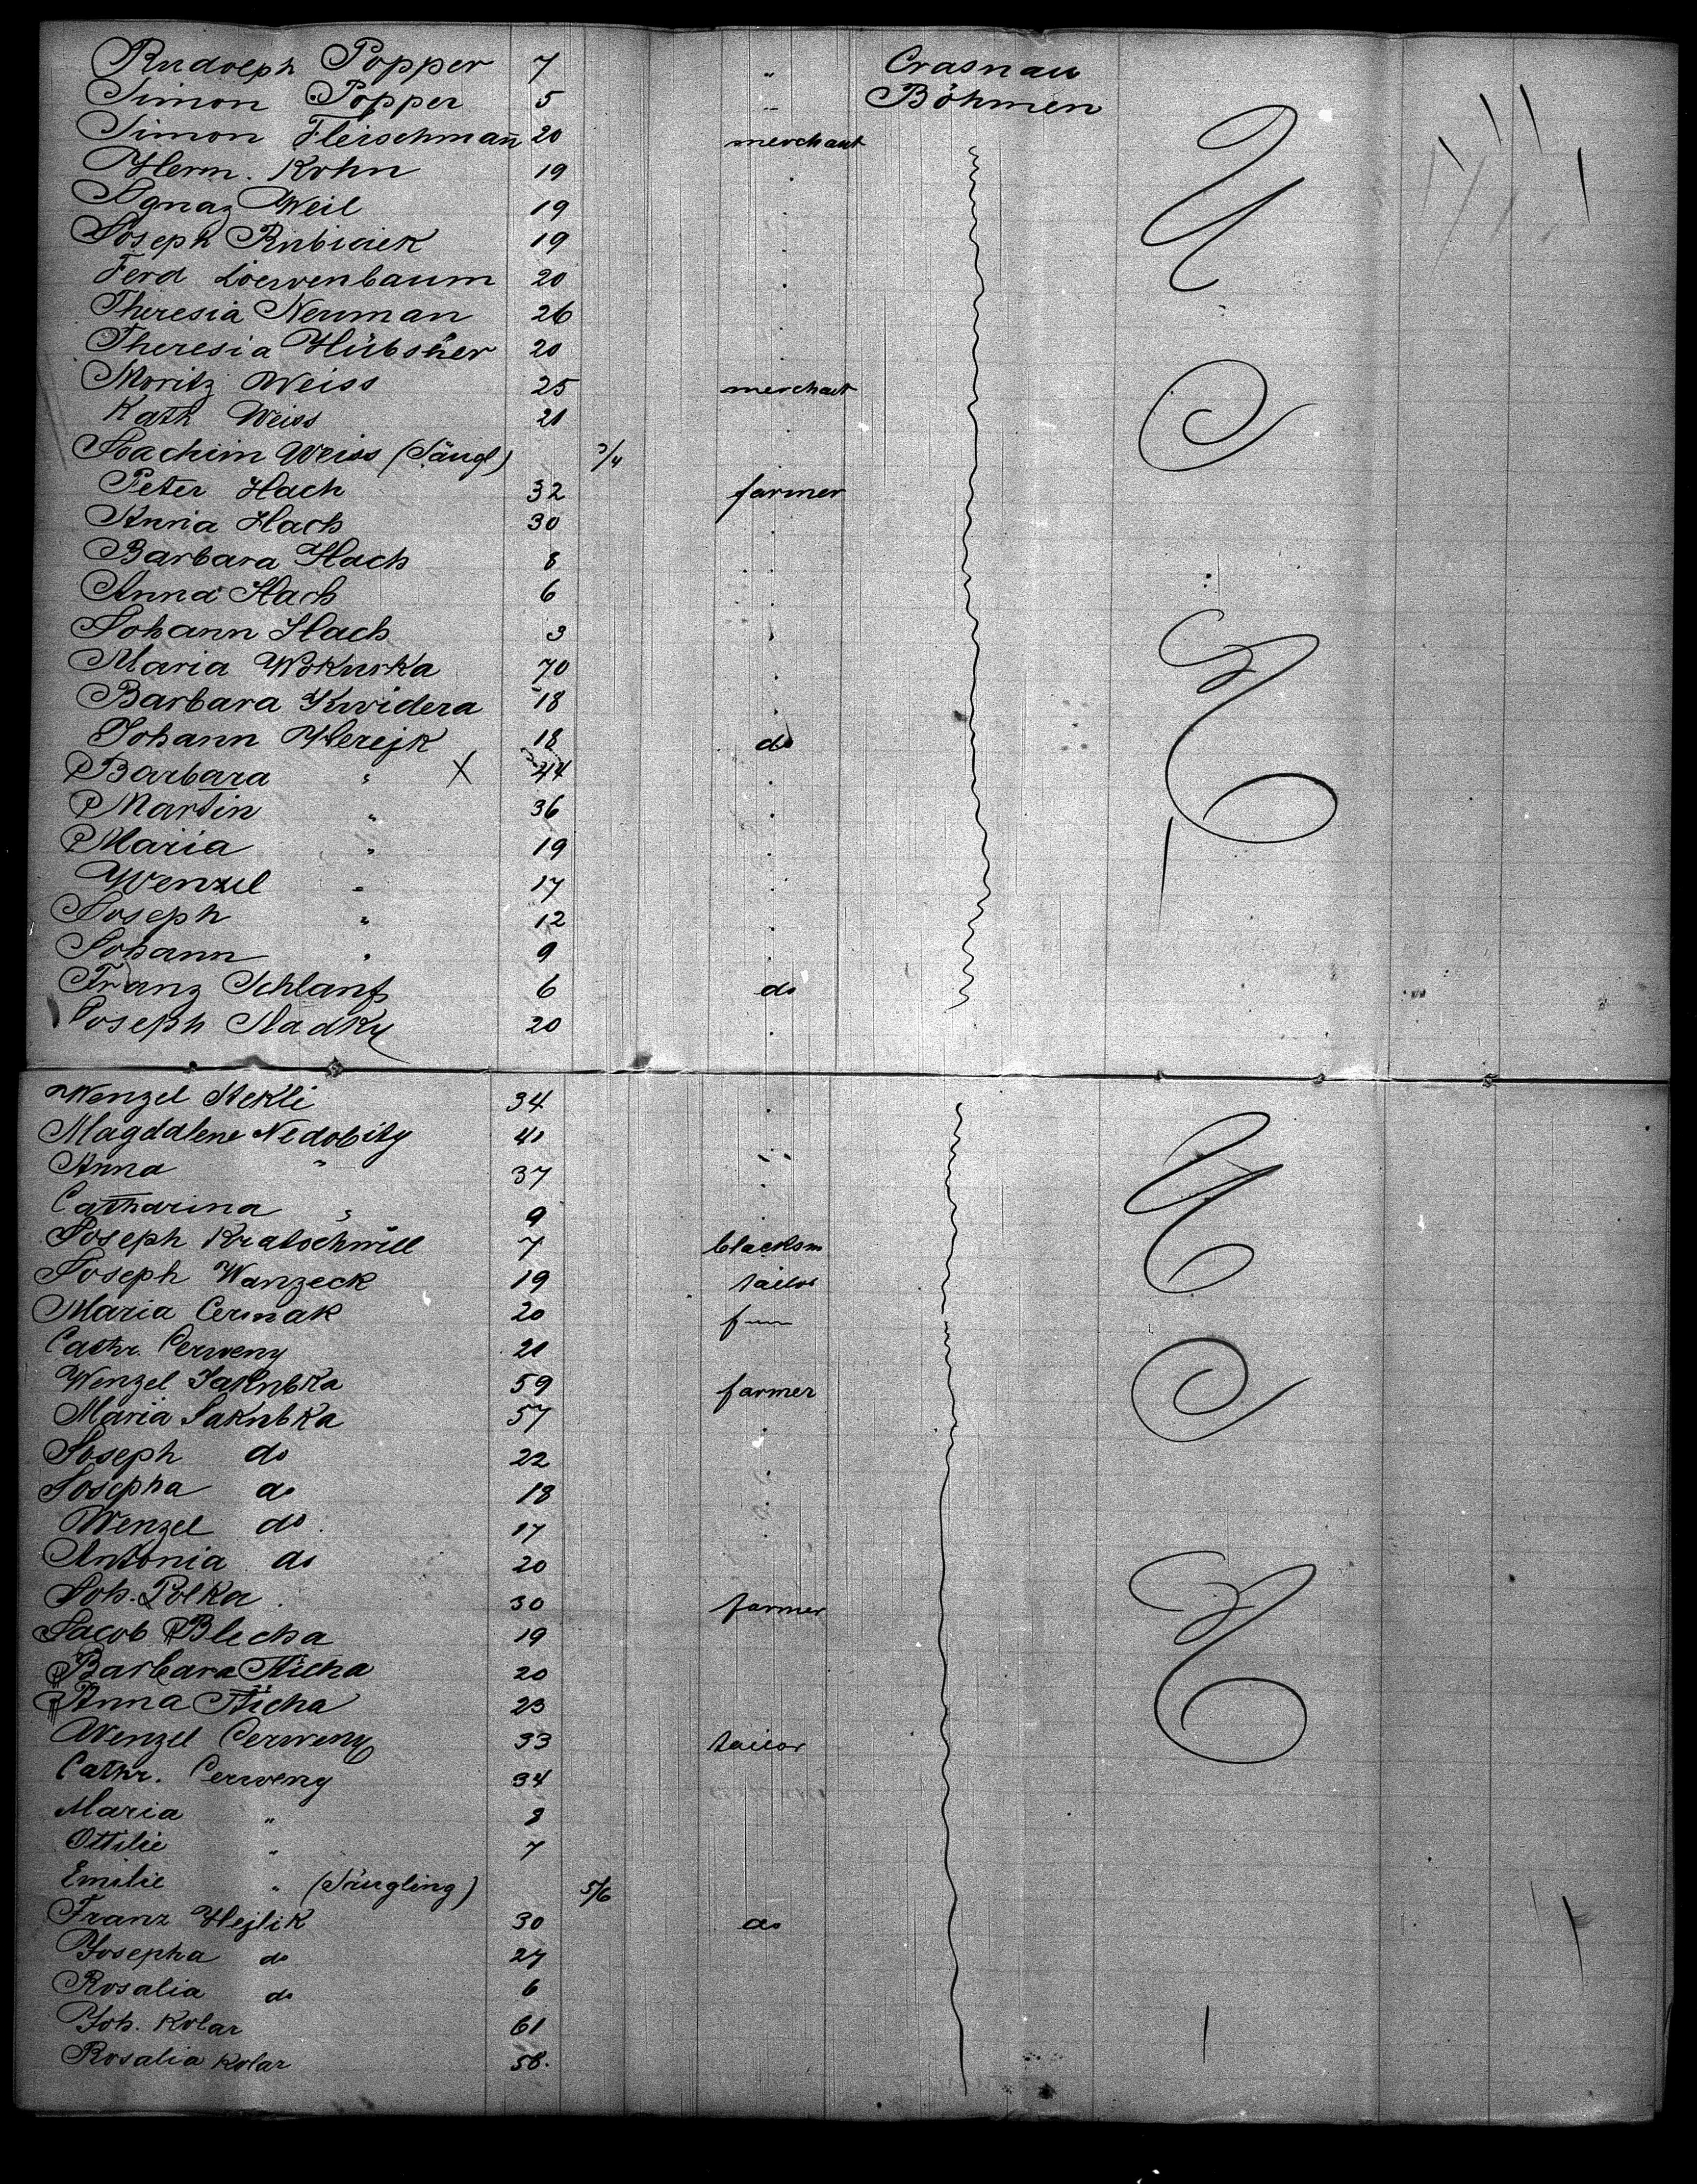 Rudolph Popper 7 " Crasnau
Simon Popper 5 " Böhmen
Simon Fleischmañ 20 merchant
Herm. Kohn 19
Ignaz Weil 19
Joseph Rubicek 19
Ferd Loewenbaum 20
Theresia Neuman 26
Theresia Hübscher 20
Moritz Weiss 25 merchant
Kath Weiss 21
Joachim Weiss (Säugl) 3/4
Peter Hach 32 farmer
Anna Hach 30
Barbara Hach 8
Anna Hach 6
Johann Hach 3
Maria Wokurka 70
Barbara Kwidera 18
Johann Herejk 18 do
Barbara " X 44
Martin " 36
Maria " 19
Wenzel " 17
Joseph " 12
Johann " 9
Franz Schlanf 6 do
Joseph Sladky 20
Wenzel Stekli 34
Magdalene Nedobity 41
Anna " 37
Catharina " 9
Joseph Kratochwill 7 blacksm
Joseph Wanzeck 19 tailor
Maria Cermak 20 f
Cathr. Cerweny 21
Wenzel Jakubka 59 farmer
Maria Jakubka 57
Joseph do 22
Josepha do 18
Wenzel do 17
Antonia do 20
Joh. Polka 30 farmer
Jacob Blecha 19
Barbara Ticha 20
Anna Ticha 23
Wenzel Cerweny 33 tailor
Cathr. Cerweny 34
Maria " 8
Ottilie " 7
Emilie " (Säugling) 5/6
Franz Hejlik 30 do
Josepha do 27
Rosalia do 6
Joh. Kolar 61
Rosalia Kolar 58.